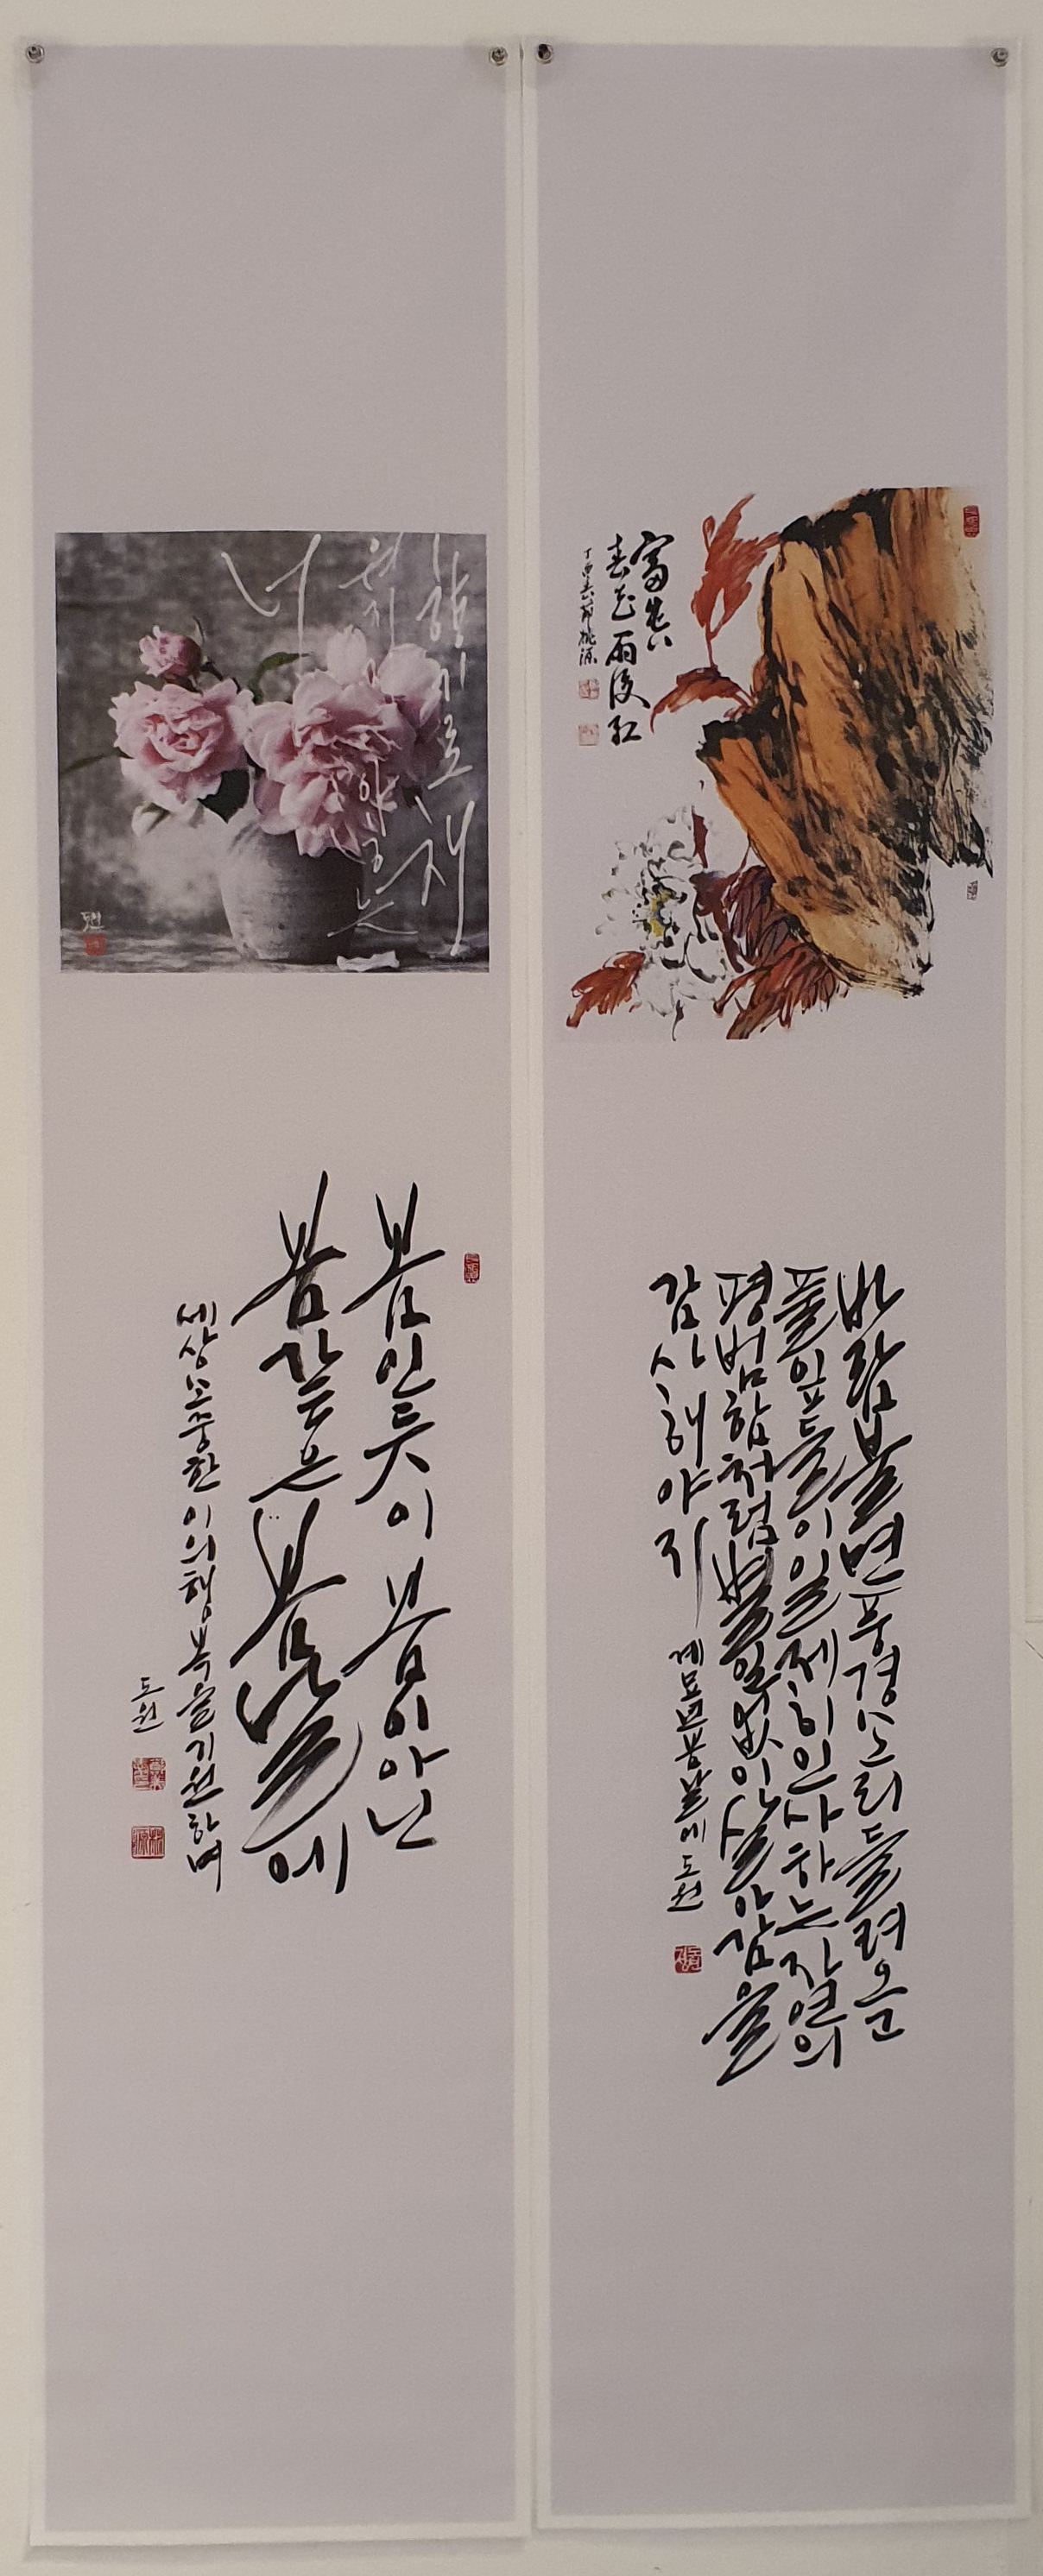 富貴
春花雨後紅
丁酉春節桃源
바람불면풍경소리들려오군
풀잎들이일제히인사하는자연의
평범함처럼별일없인살아감을
감사해야지
계묘년봄날에 도원
향기로 재
먼지
않고는
너
도원
봄인듯이 봄이아닌
봄같은 봄날에
세상소중한이의행복을기원하며
도원